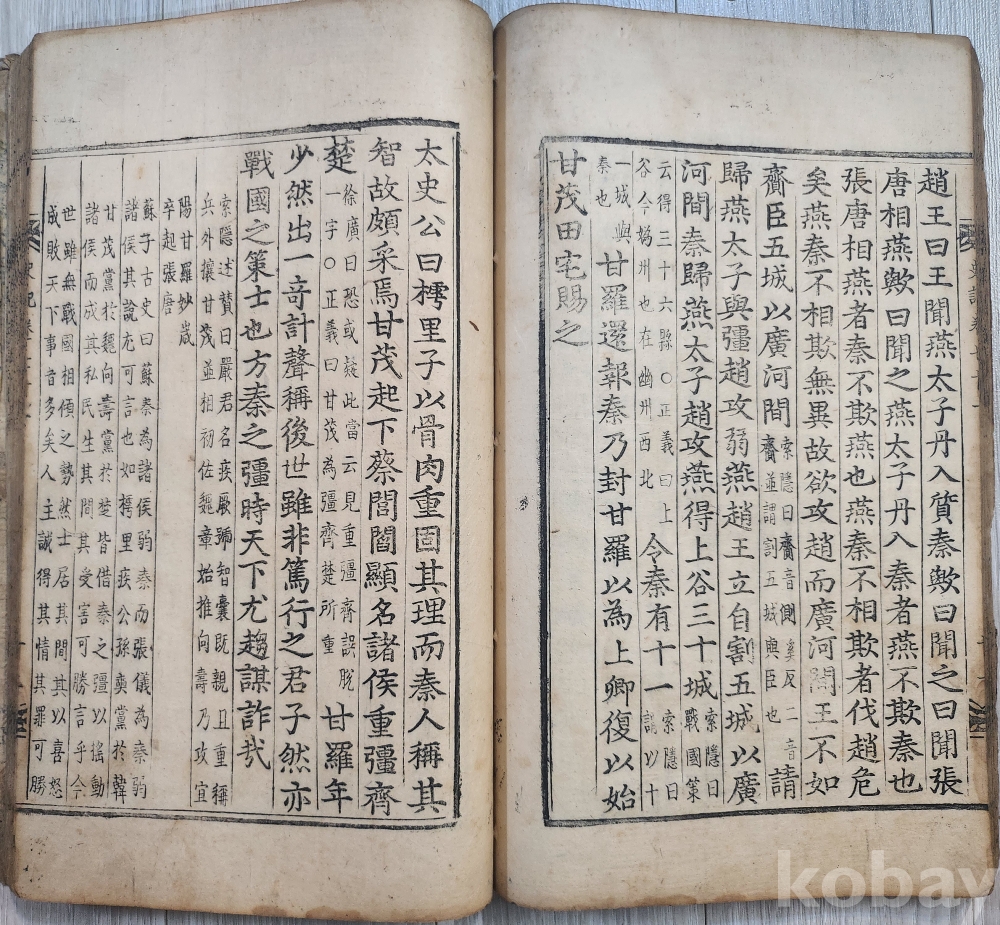 趙王曰王聞燕太子丹入質秦歟曰聞之曰聞張
唐相燕歟曰聞之燕太子丹入秦者燕不欺秦也
張唐相燕者秦不欺燕也燕秦不相欺者伐趙危
矣燕秦不相欺無異故欲攻趙而廣河間王不如
齎臣五城以廣河間索隱曰齎音側奚反二音齎並謂割五城與臣也請
歸燕太子與彊趙攻弱燕趙王立自割五城以廣
河間秦歸燕太子趙攻燕得上谷三十城索隱曰戰國策
云得三十六縣○正義曰上谷今媯州也在幽州西北令秦有十一索隱曰謂以十
一城與秦也甘羅還報秦乃封甘羅以為上卿復以始
甘茂田宅賜之
太史公曰樗里子以骨肉重固其理而秦人稱其
智故頗采焉甘茂起下蔡閭閻顯名諸侯重彊齊
楚徐廣曰恐或疑此當云見重彊齊誤脫一字○正義曰甘茂為彊齊楚所重甘羅年
少然出一奇計聲稱後世雖非篤行之君子然亦
戰國之策士也方秦之彊時天下尤趨謀詐㢤
索隱述贊曰嚴君名疾厥號智囊既親且重稱
兵外攘甘茂並相初佐魏章始推向壽乃攻宜
陽甘羅妙歲
卒起張唐
蘇子古史曰蘇秦為諸侯弱秦而張儀為秦弱
諸侯其說尤可言也如樗里疾公孫奭黨於韓
甘茂黨於魏向壽黨於楚皆借秦之彊以搖動
諸侯而成其私民生其間其受害可勝言乎今
世雖無戰國相傾之勢然士居其間其以喜怒
成敗天下事者多矣人主誠得其情其罪可勝
kobay